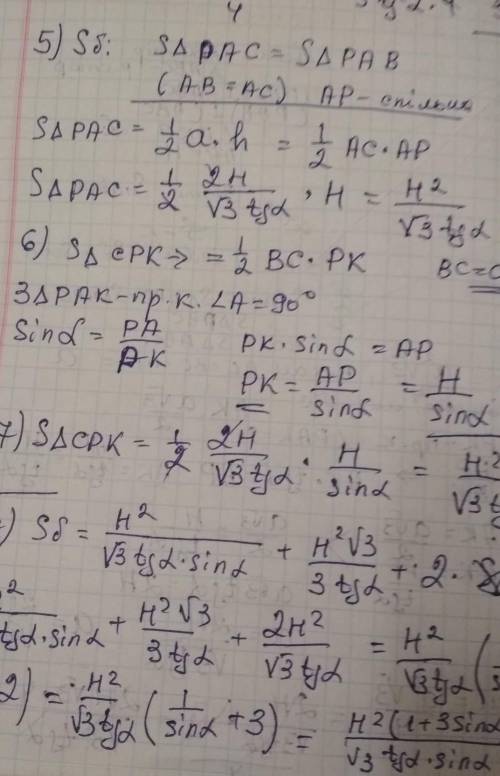 4
5) Sб: SΔPAC = SΔPAB
(AB = AC) AP - спільна
SΔPAC = 1/2 a·h = 1/2 AC·AP
SΔPAC = 1/2 2H/(√3 tgα) · H = H²/(√3 tgα)
6) SΔCPK → = 1/2 BC · PK BC=
З ΔPAK - пр.к. ∠A = 90°
Sinα = PA/PK PK · sinα = AP
PK = AP/sinα = H/sinα
7) SΔCPK = 1/2 2H/(√3 tgα) · H/sinα =
) Sб = H²/(√3 tgα · sinα) + H²√3/(3 tgα) + 2 ·
tgα · sinα + H²√3/(3 tgα) + 2H²/(√3 tgα) = H²/(√3 tgα) (
2) = H²/(√3 tgα) (1/sinα + 3) = H²(1 + 3sinα/(√3 tgα · sinα